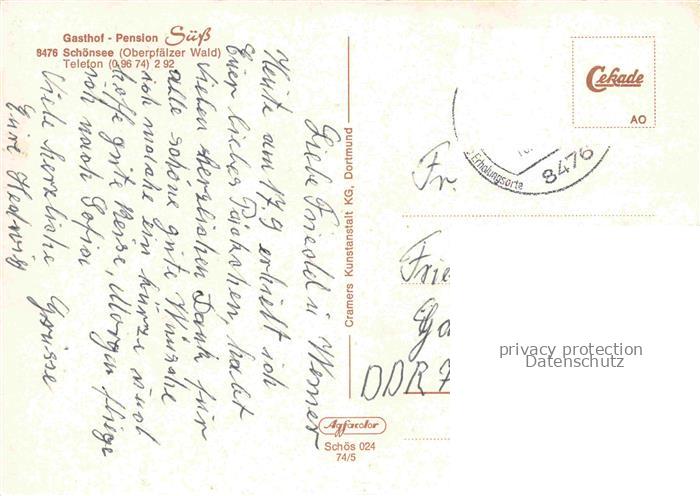 Gasthof - Pension Süß
8476 Schönsee (Oberpfälzer Wald)
Telefon (0 96 74) 2 92
Liebe Friedl u Werner
Heute am 17.9 erhielt ich
Euer liebes Päckchen, habt
vielen herzlichen Dank für
alle schöne gute Wünsche
ich mache ein kurze und
hoffe gute Reise, Morgen fliege
ich nach Sofia
Viele herzliche Grüsse
Eure Hedwig
Cramers Kunstanstalt KG, Dortmund
Agfacolor
Schös 024
74/5
Cekade
AO
Erholungsorte
8476
Fr
Frie
DDR 7
privacy protection
Datenschutz